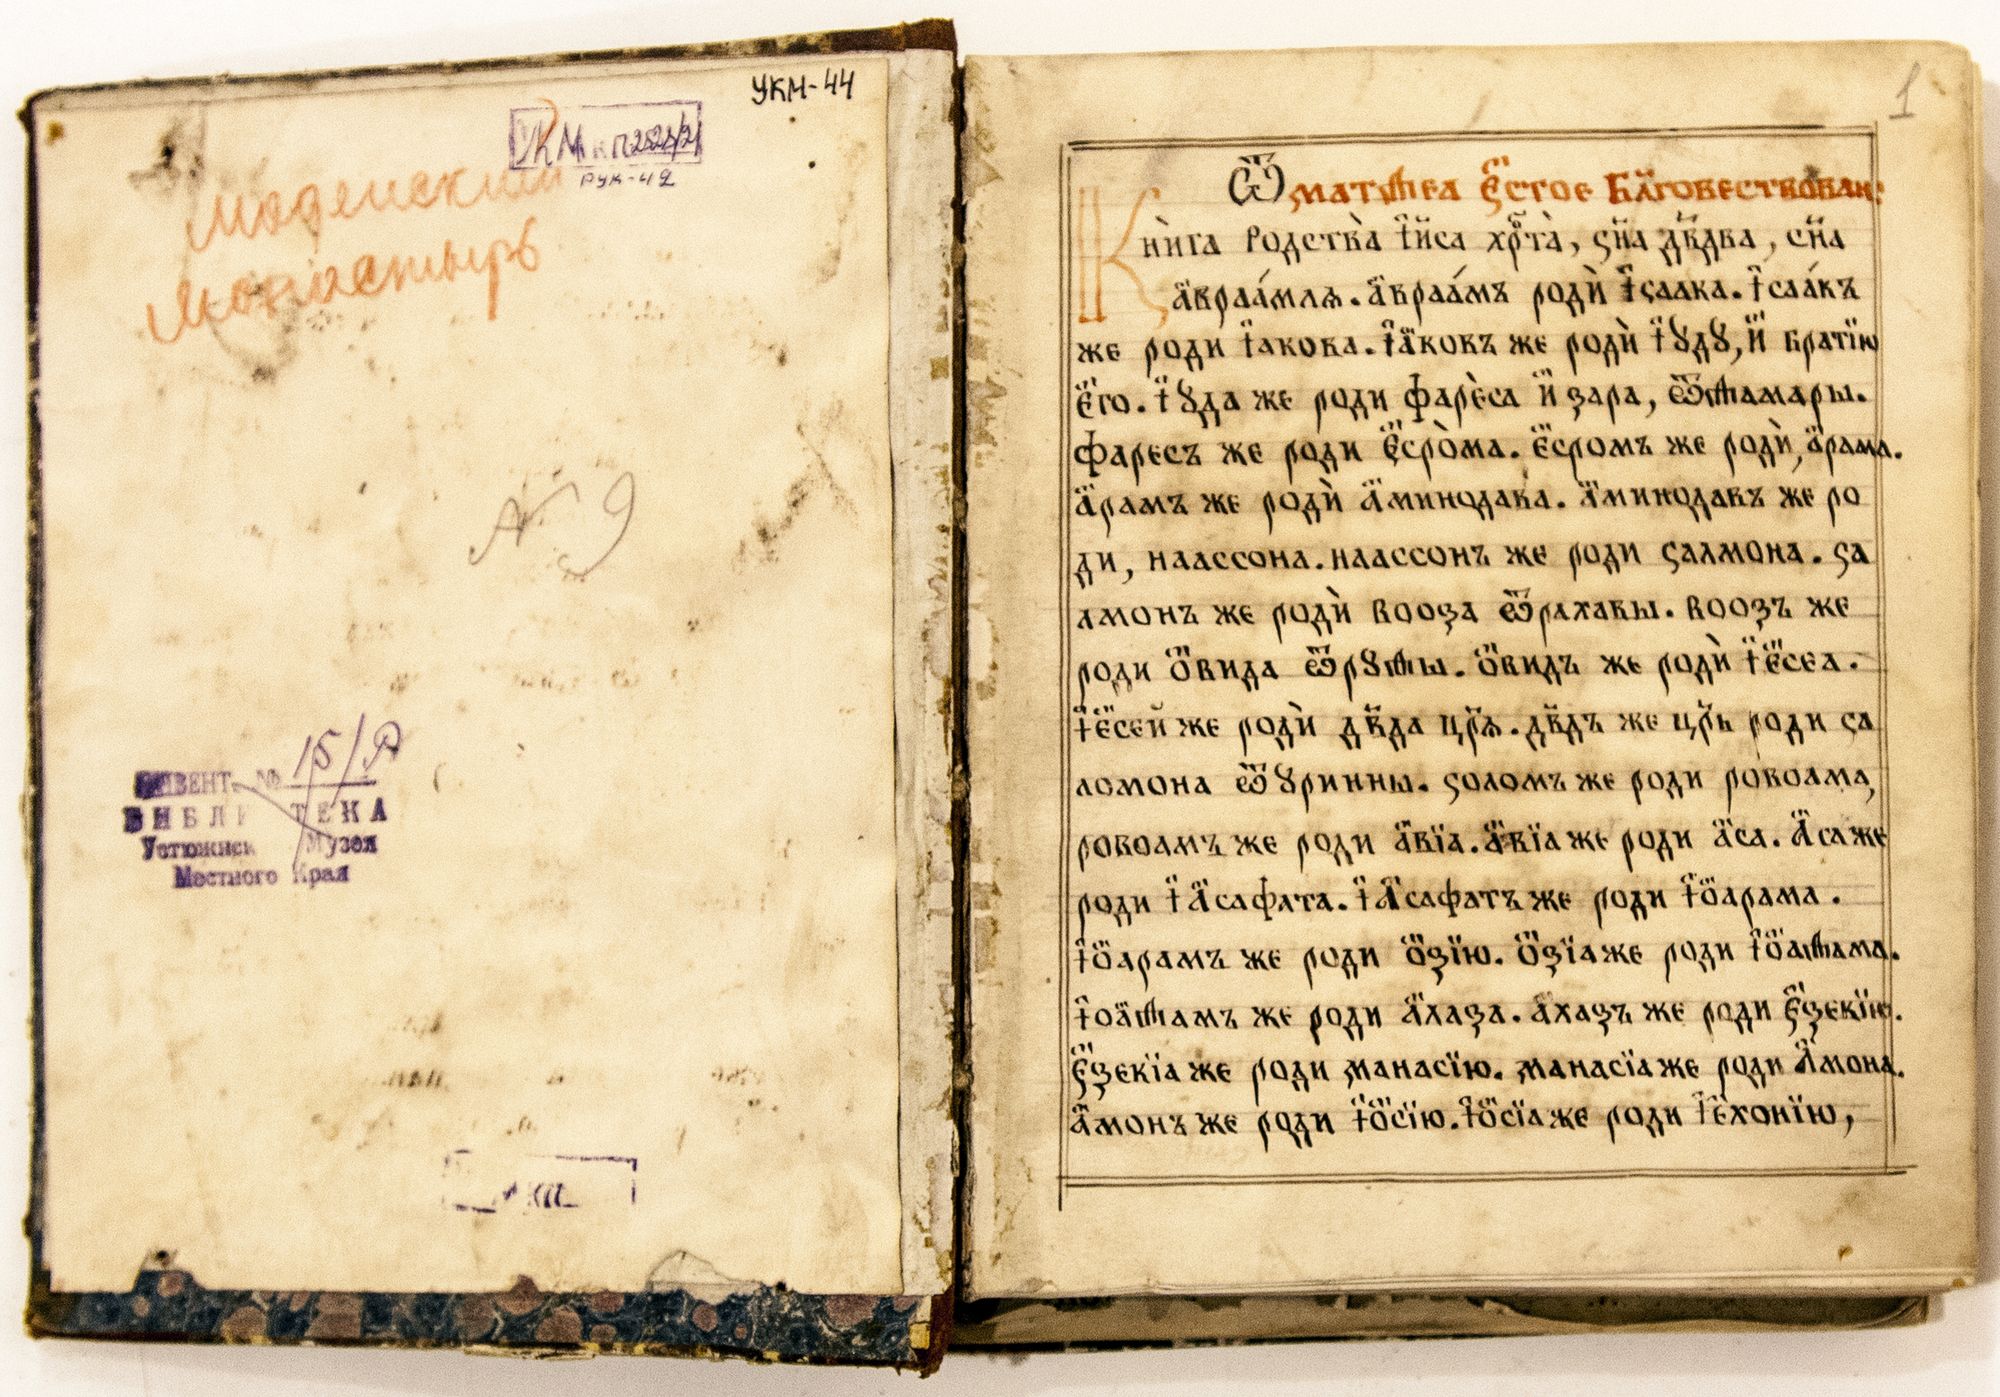 УКМ-44
УКМ кп2521/21
РУК-42
Моденский
Монастырь
№ 9
ИНВЕНТ. № 15/Р
БИБЛИ ТЕКА
Устюжнск Музея
Местного Края
КП
1
Ѿ матѳеа є҆стое Бл҃говествован:
Кнѝга Родства̀ І҆и҃са хр҃та̀, си҃а дв҃два, си҃а
а҆враа́млѧ. а҆враа́мъ роди̏ І҆саака. І҆саа́къ
же роди І҆акова. І҆а҆ковъ же роди̏ І҆ꙋдꙋ, и҆ братїю
є҆го. І҆ꙋда же роди фаре̏са и҆ зара, ѿ ѳамары.
фаресъ же роди є҆сро̀ма. є҆сромъ же роди̏, а҆рама.
а҆рамъ же роди̏ а҆минодава. а҆минодавъ же ро
ди, наассона. наассонъ же роди салмона. са
лмонъ же роди̏ вооза ѿ рахавы. воозъ же
роди о҆вида ѿ рꙋѳы. о҆видъ же роди̏ І҆є҆сеа.
І҆є҆сей же роди̏ дв҃да цр҃ѧ. дв҃дъ же цр҃ь роди са
ломона ѿ ꙋринны. соломъ же роди ровоама,
ровоамъ же роди а҆вїа. а҆вїа же роди а҆са. А҆са же
роди І҆а҆сафата. І҆а҆сафатъ же роди І҆ѻ҆арама.
І҆ѻ҆арамъ же роди ѻ҆зїю. ѻ҆зїа же роди І҆ѻ҆аѳама.
І҆оа҆ѳамъ же роди а҆хаза. а҆хазъ же роди є҆зекїю.
є҆зекїа же роди манасїю. манасїа же роди а҆мона.
а҆монъ же роди І҆ѻ҆сїю. І҆ѻ҆сїа же роди І҆е҆хонїю,